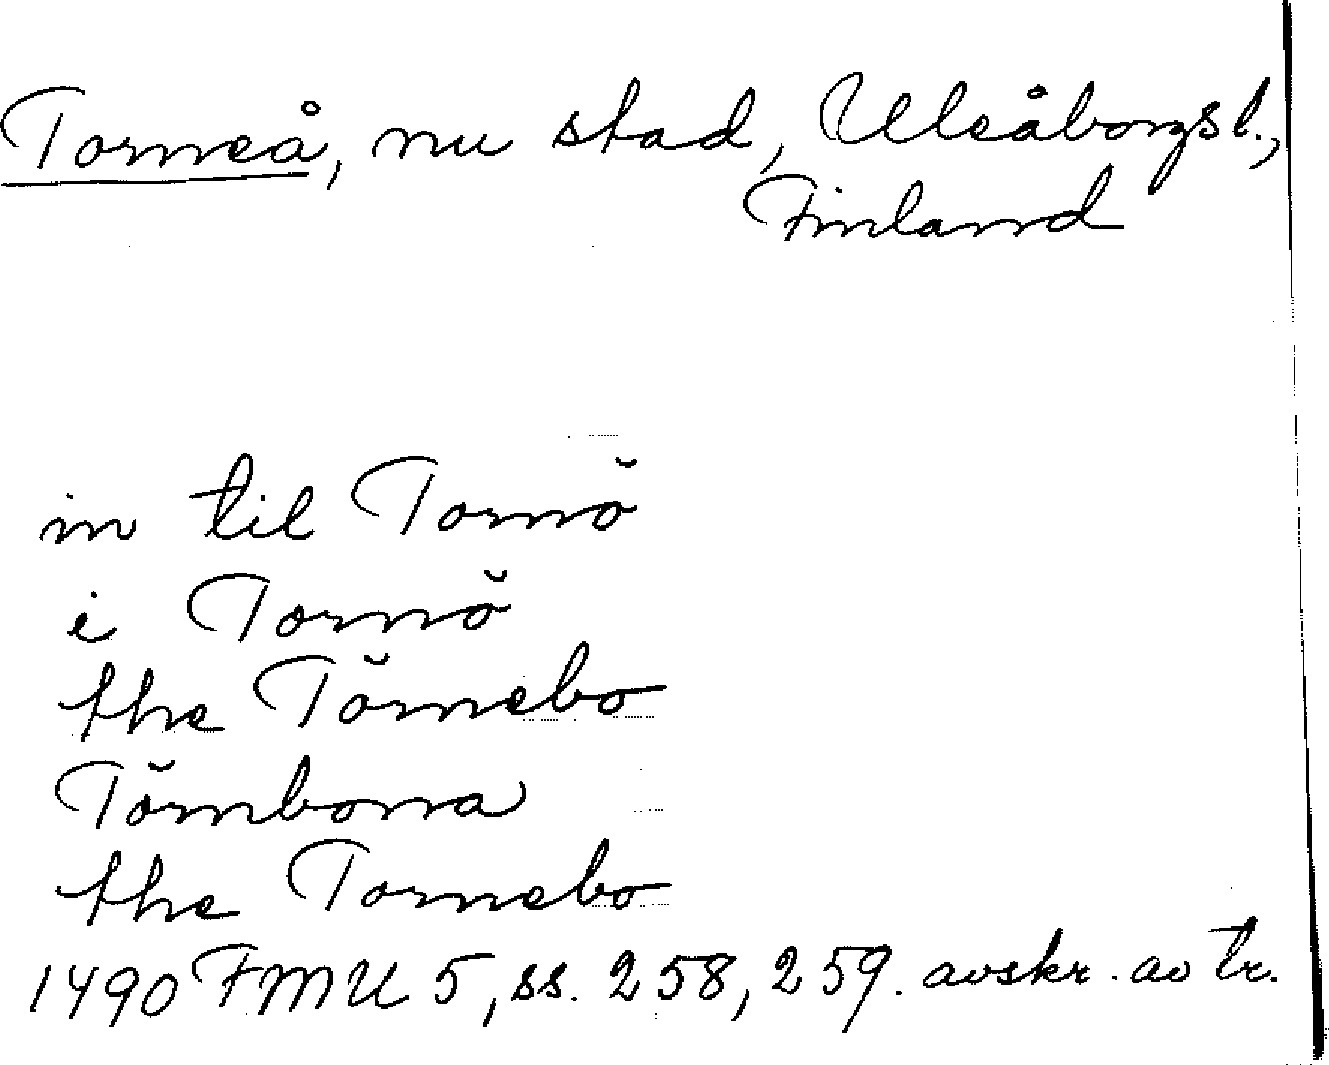 Torneå, nu stad, Uleåborgs l.,
Finland
in til Tornŏ
i Tornŏ
the Tŏrnebo
Tŏrnbona
the Tornebo
1490 FMU 5, ss. 258, 259. avskr. av tr.